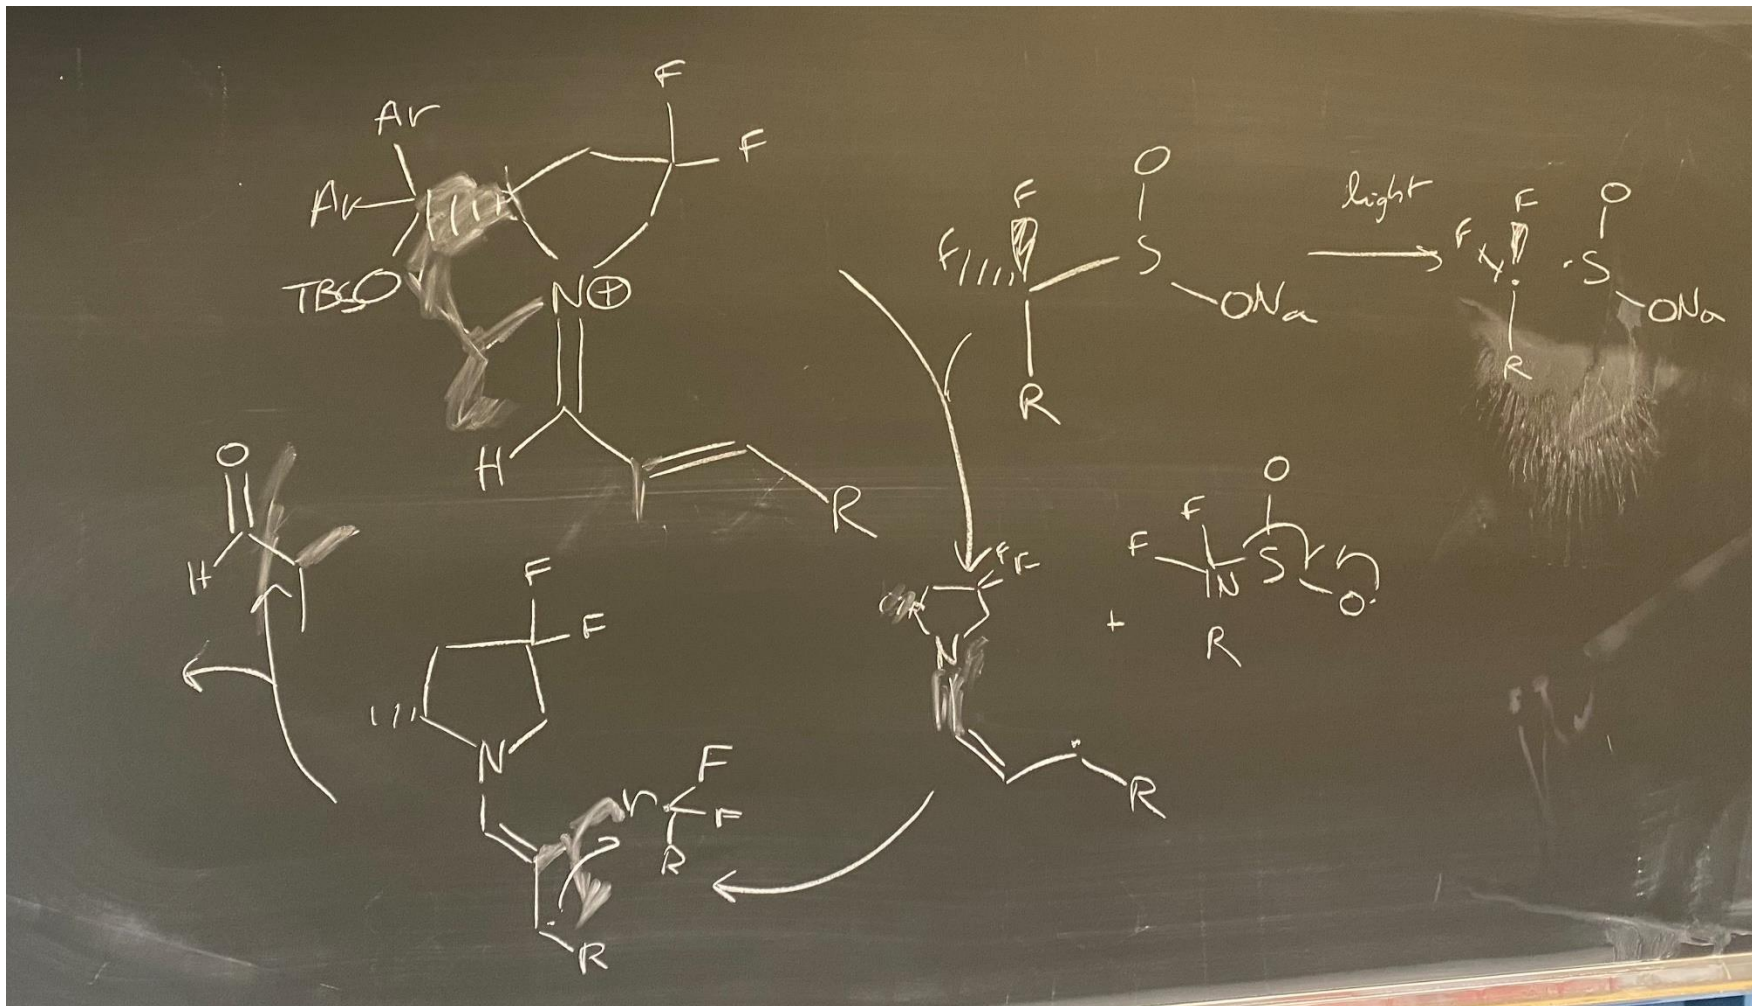 Ar
F
F
Ar
TBSO
N⊕
H
R
F
F
O
S
ONa
R
light
F
F
O
·S
ONa
R
O
H
F
F
N
F
F
R
R
F
F
N
R
+
F
F
O
S
O·
R